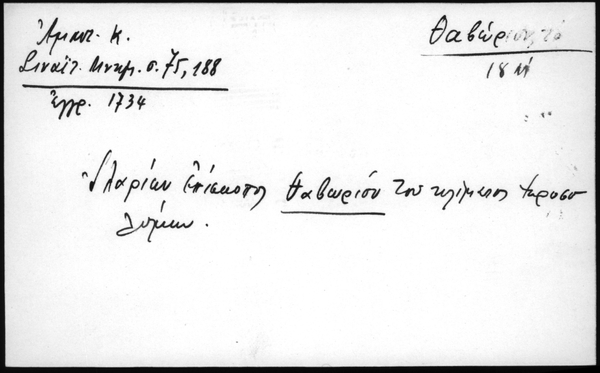 Ἄμαντ. Κ.
Σιναϊτ. Μνημ. σ. 75, 188
Ἔγγρ. 1734
Θαβώριον, τό
18
Ἱλαρίων ἐπίσκοπος Θαβωρίου τοῦ κλίματος Ἱεροσο
λύμων.